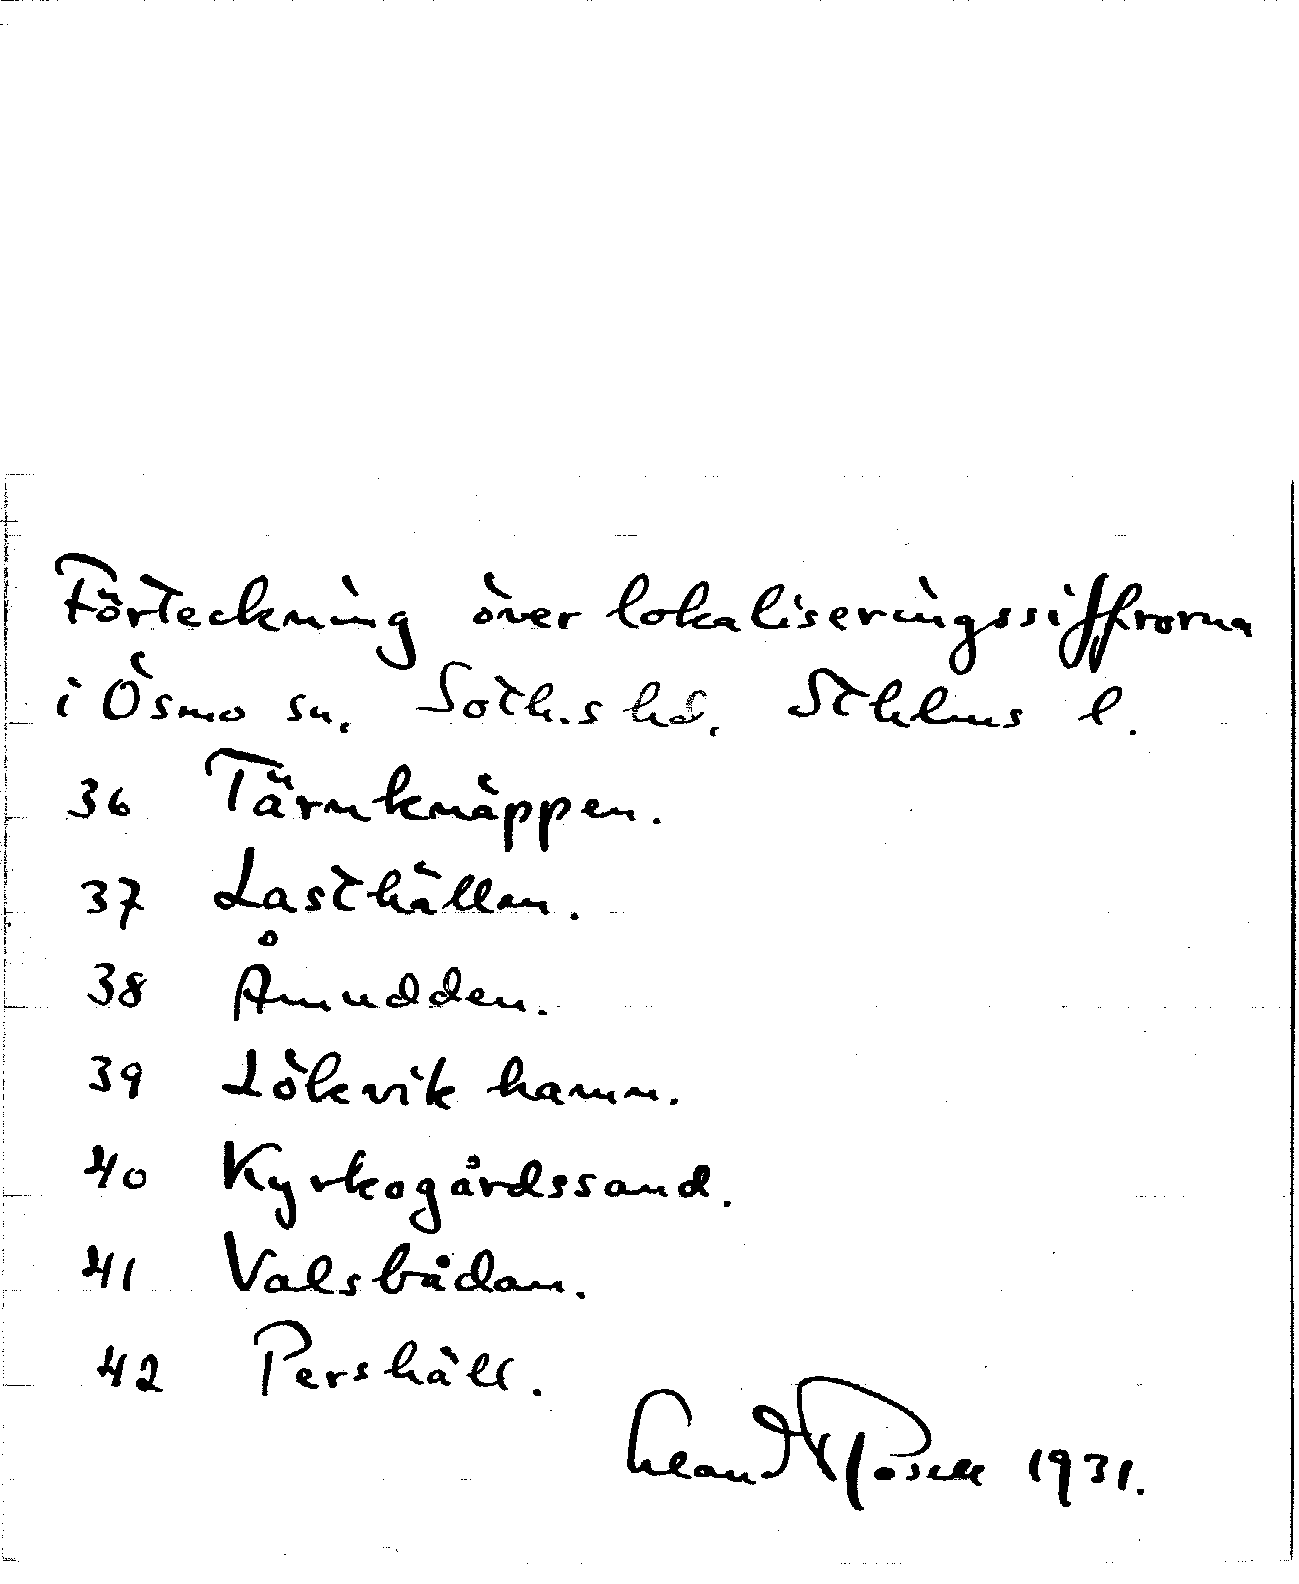 Förteckning över lokaliseringssiffrorna
i Ösmo sn. Soth.s hd. Sthlms l.
36 Tärnknäppen.
37 Lasthällan.
38 Åmudden.
39 Lökvik hamn.
40 Kyrkogårdssand.
41 Valsbådan.
42 Pershäll.
1931.